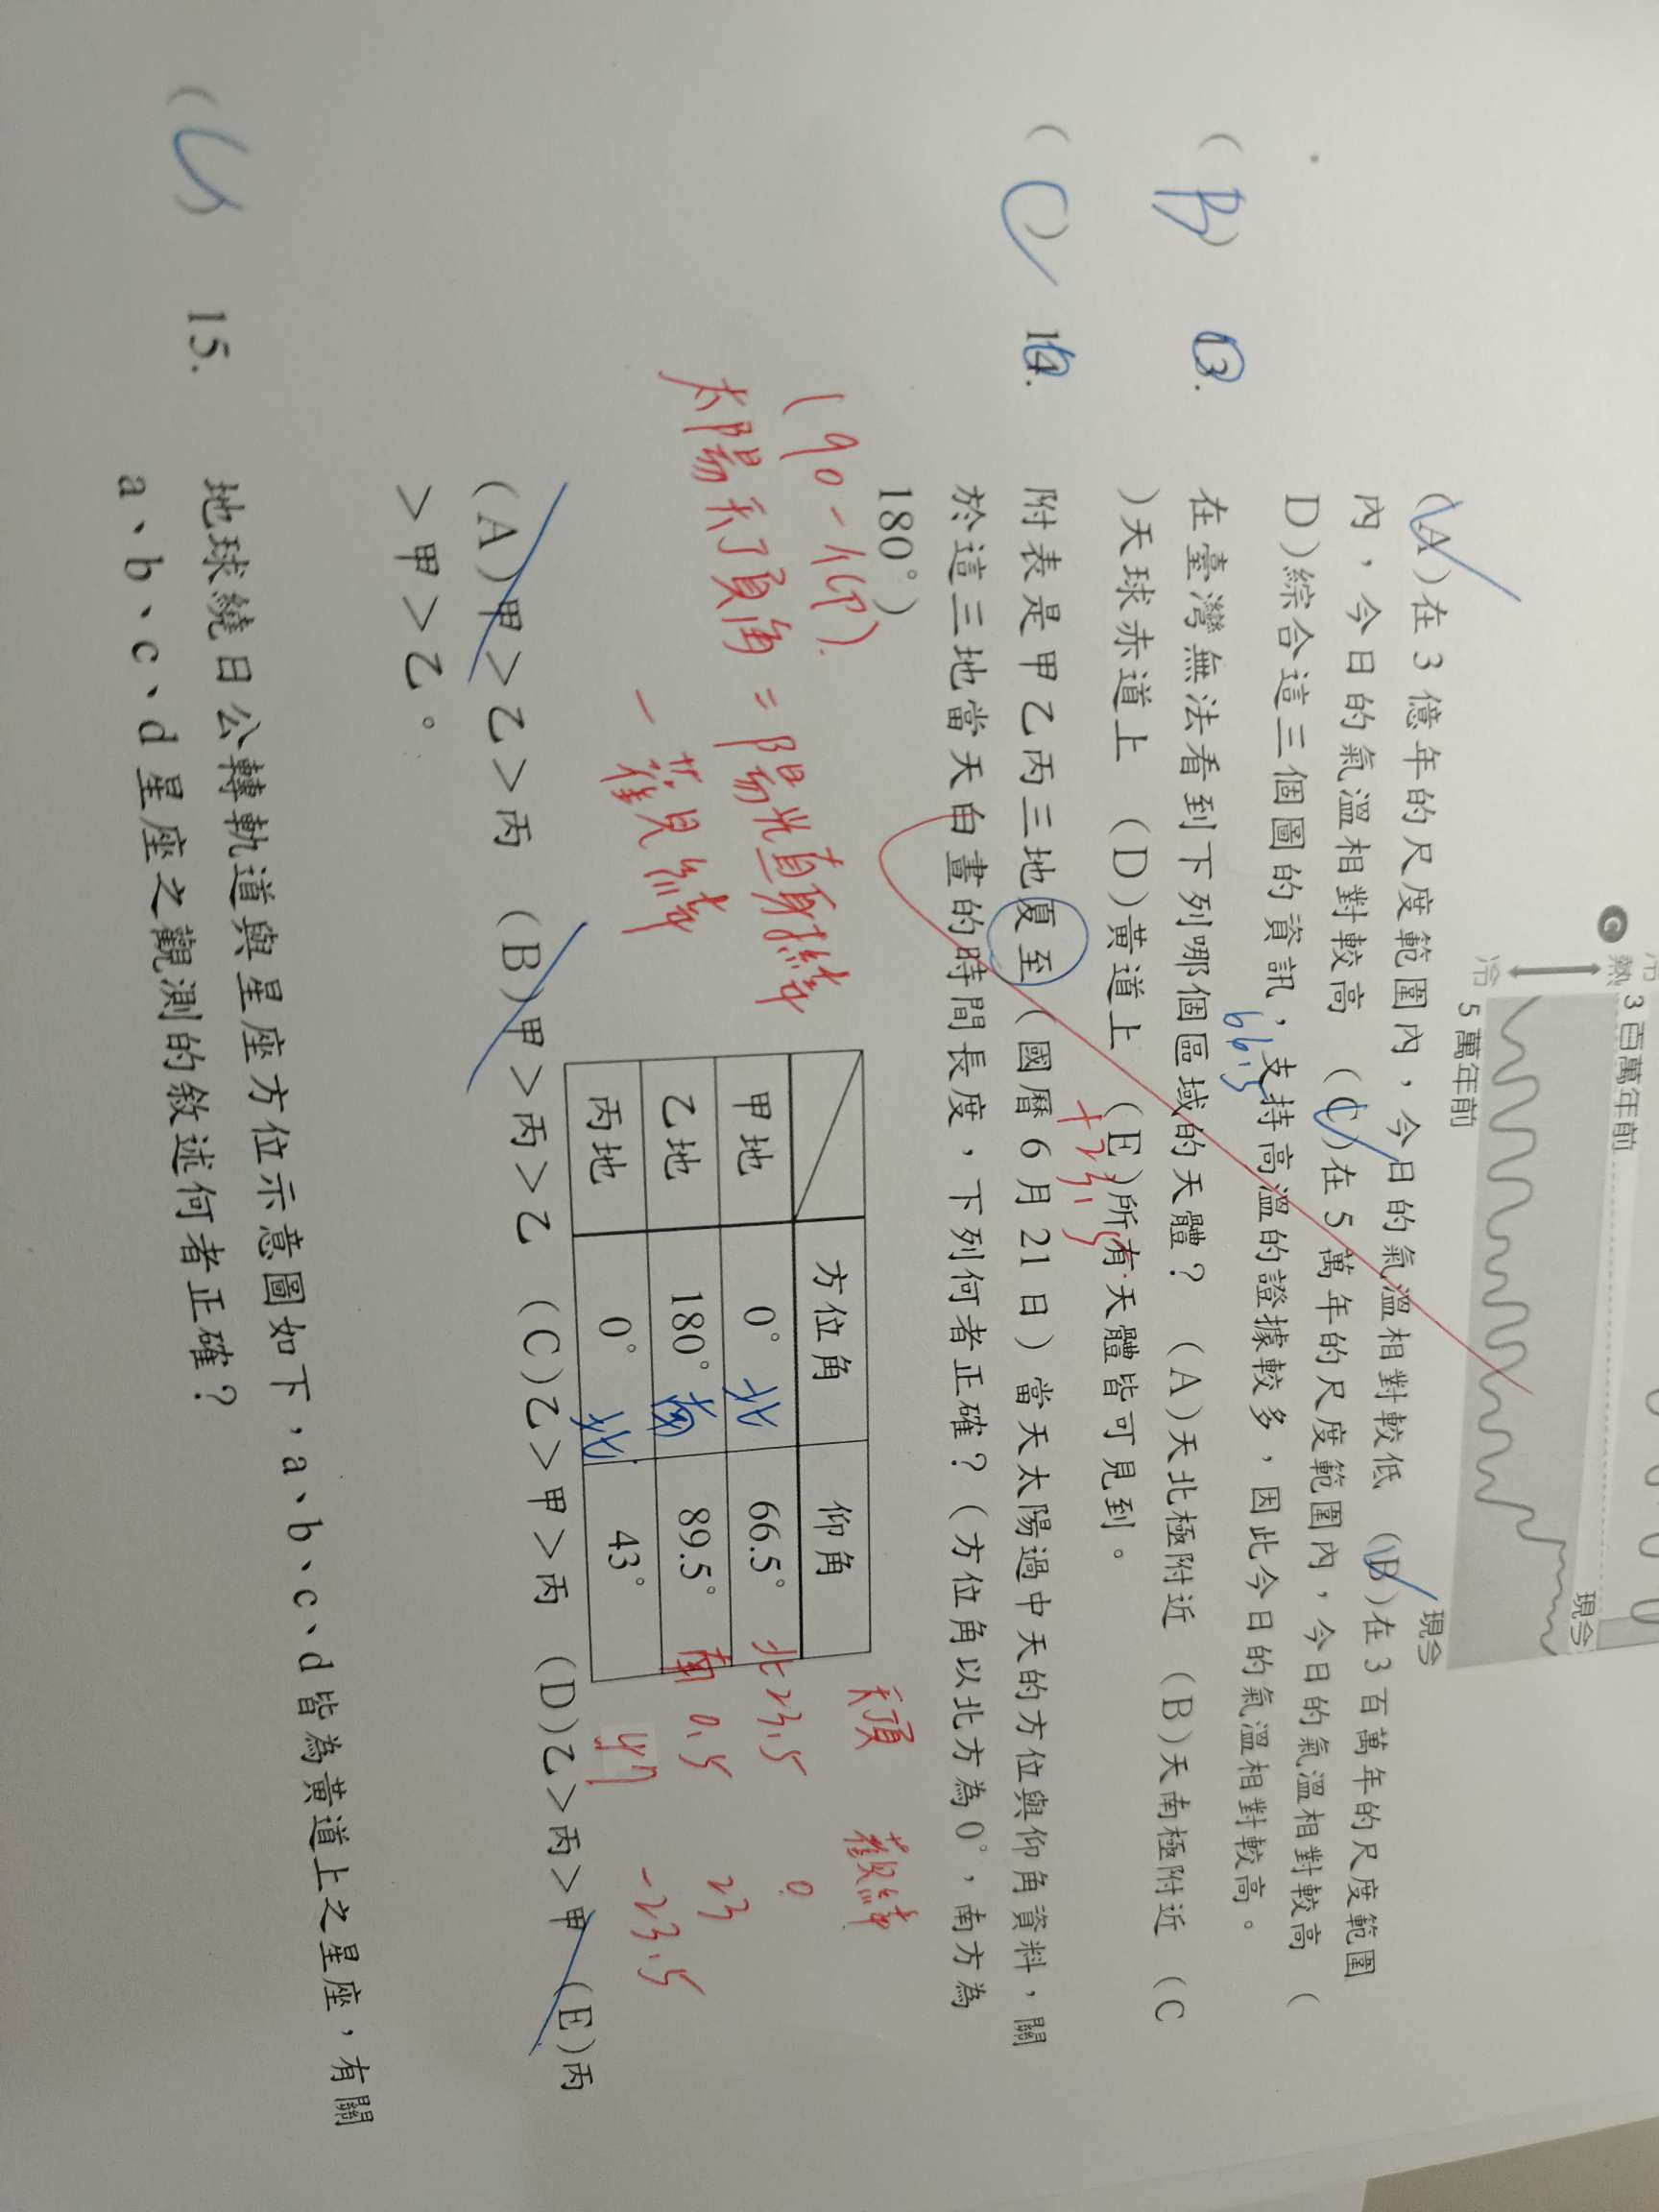 G
熱
冷
3 百萬年前
現今
5 萬年前
現今
(A)在 3 億年的尺度範圍內,今日的氣溫相對較低 (B)在 3 百萬年的尺度範圍
內,今日的氣溫相對較高 (C)在 5 萬年的尺度範圍內,今日的氣溫相對較高 (
D)綜合這三個圖的資訊,支持高溫的證據較多,因此今日的氣溫相對較高。
66.5
(B) 13. 在臺灣無法看到下列哪個區域的天體? (A)天北極附近 (B)天南極附近 (C
)天球赤道上 (D)黃道上 (E)所有天體皆可見到。
+23.5
(C) 14. 附表是甲乙丙三地夏至(國曆 6 月 21 日)當天太陽過中天的方位與仰角資料,關
於這三地當天白晝的時間長度,下列何者正確?(方位角以北方為 0°,南方為
180°)
(90-仰)
太陽天頂角 = 陽光直射緯
- 觀緯
方位角 仰角 天頂 觀緯
甲地 0° 北 66.5° 北 23.5 0
乙地 180° 南 89.5° 南 0.5 23
丙地 0° 北 43° 47 -23.5
(A)甲>乙>丙 (B)甲>丙>乙 (C)乙>甲>丙 (D)乙>丙>甲 (E)丙
>甲>乙。
15. 地球繞日公轉軌道與星座方位示意圖如下,a、b、c、d 皆為黃道上之星座,有關
a、b、c、d 星座之觀測的敘述何者正確?